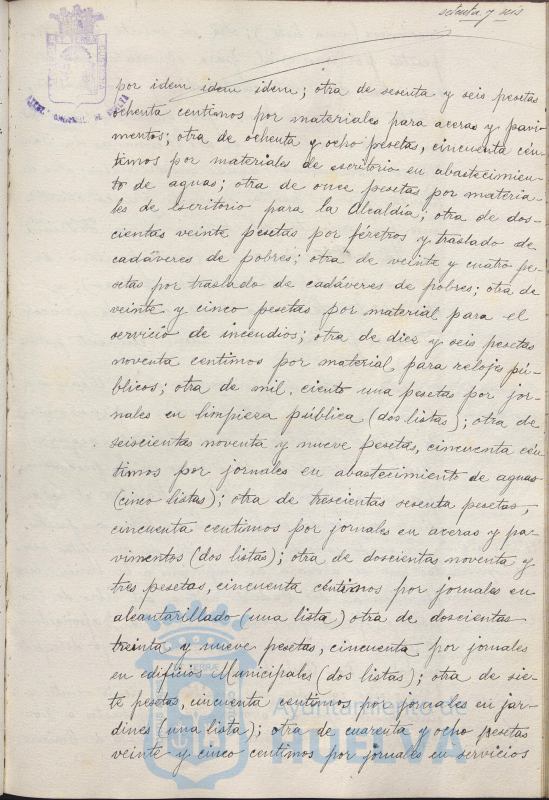 setenta y seis
por idem idem idem; otra de sesenta y seis pesetas
ochenta centimos por materiales para aceras y pavi-
mentos; otra de ochenta y ocho pesetas, cincuenta cén-
timos por materiales de escritorio en abastecimien-
to de aguas; otra de once pesetas por materia-
les de escritorio para la Alcaldía; otra de dos-
cientas veinte pesetas por féretros y traslado de
cadáveres de pobres; otra de veinte y cuatro pe-
setas por traslado de cadáveres de pobres; otra de
veinte y cinco pesetas por material para el
servicio de incendios; otra de diez y seis pesetas
noventa centimos por material para relojes pú-
blicos; otra de mil ciento una pesetas por jor-
nales en limpieza pública (dos listas); otra de
seiscientas noventa y nueve pesetas, cincuenta cén
timos por jornales en abastecimiento de aguas
(cinco listas); otra de trescientas sesenta pesetas,
cincuenta centimos por jornales en aceras y pa-
vimentos (dos listas); otra de doscientas noventa y
tres pesetas, cincuenta céntimos por jornales en
alcantarillado (una lista) otra de doscientas
treinta y nueve pesetas, cincuenta por jornales
en edificios Municipales (dos listas); otra de sie-
te pesetas, cincuenta centimos por jornales en jar-
dines (una lista); otra de cuarenta y ocho pesetas
veinte y cinco centimos por jornales en servicios
Ayuntamiento de
HUELVA